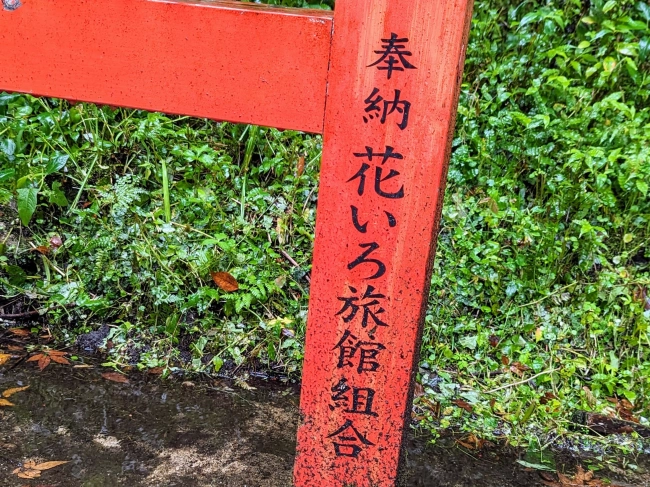 奉納 花いろ旅館組合